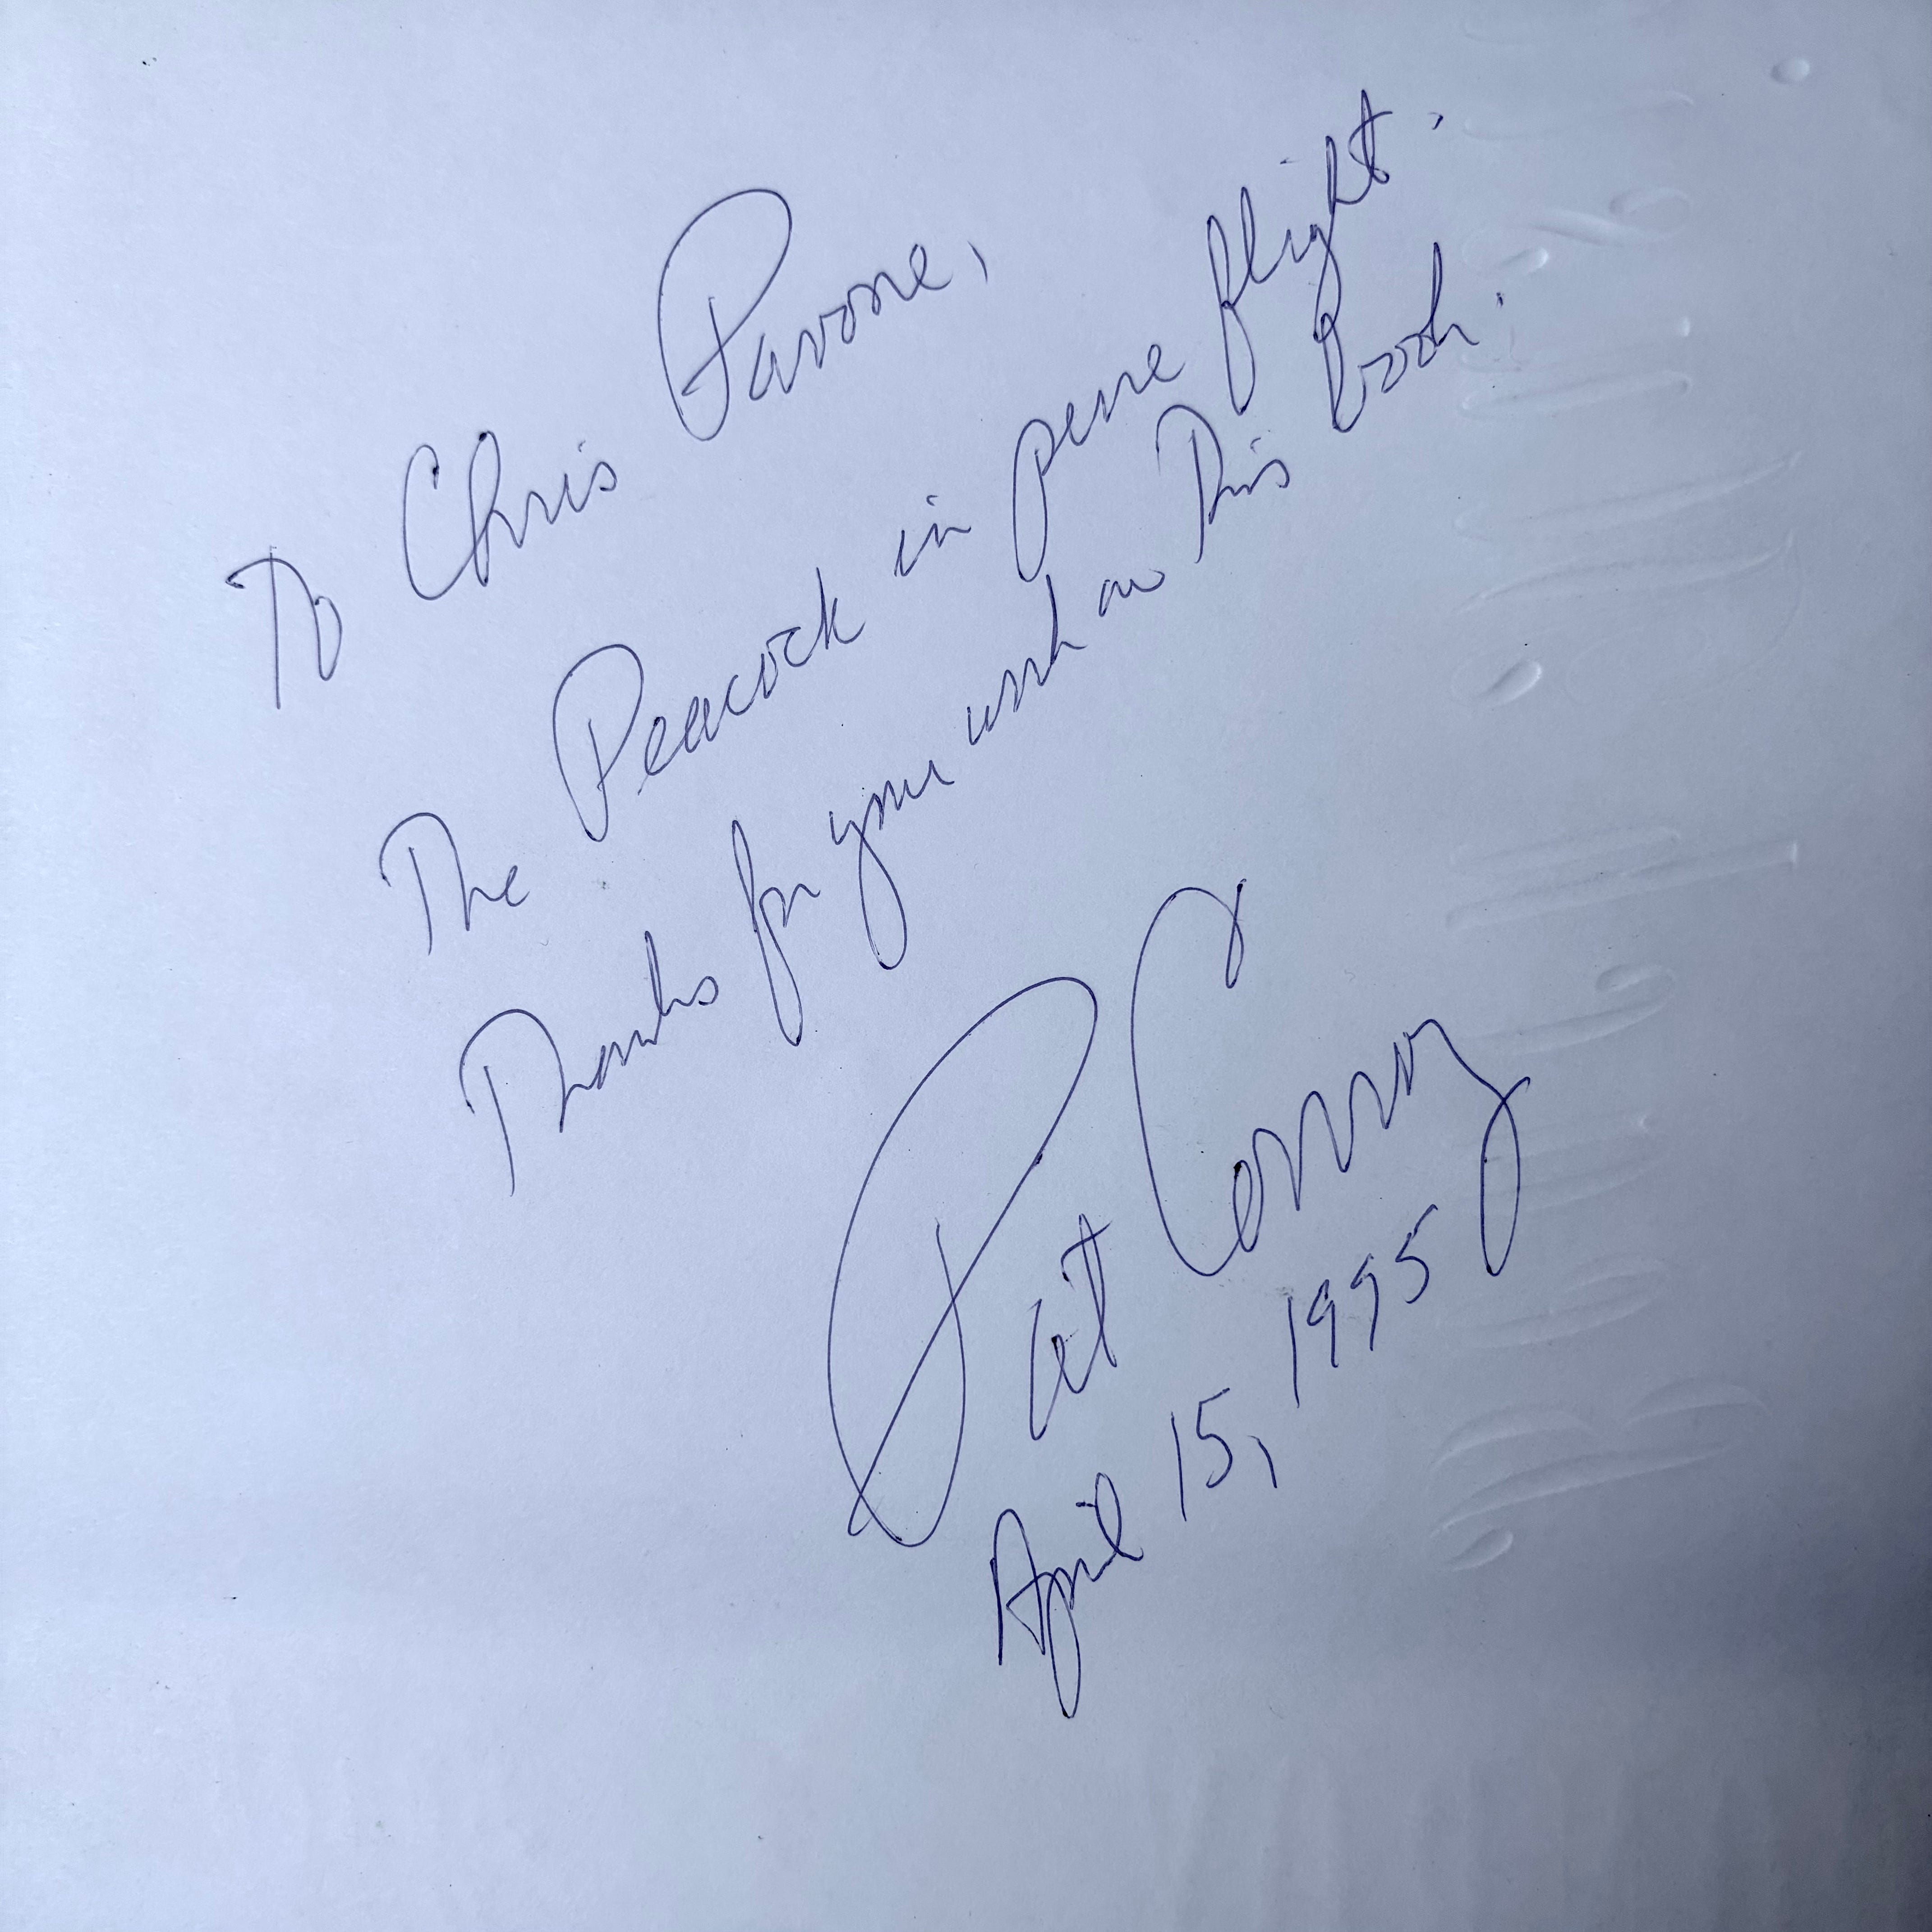 To Chris Pavone,
The Peacock in pure flight.
Thanks for your work on this book.
Pat Conroy
April 15, 1995